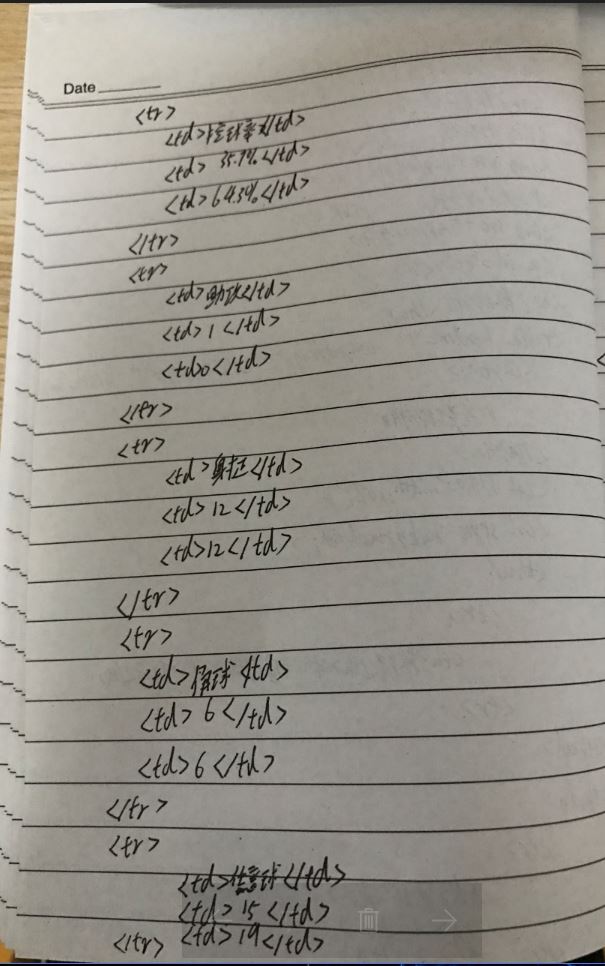 Date
<tr>
<td>控球率</td>
<td>35.7%</td>
<td>64.3%</td>
</tr>
<tr>
<td>助攻</td>
<td>1</td>
<td>0</td>
</tr>
<tr>
<td>射正</td>
<td>12</td>
<td>12</td>
</tr>
<tr>
<td>角球</td>
<td>6</td>
<td>6</td>
</tr>
<tr>
<td>任意球</td>
<td>15</td>
</tr> <td>19</td>